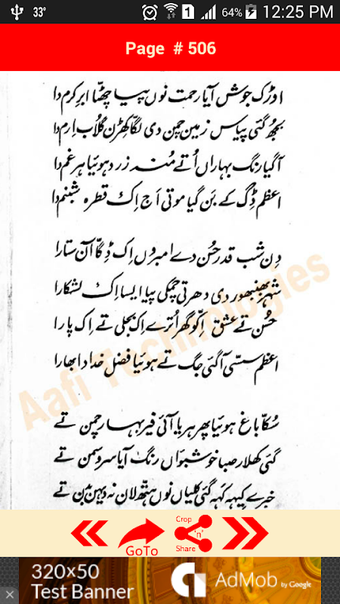 33°
64% 12:25 PM
Page # 506
اوڑک جوش آیا رحمت نوں پیا چھٹا ابر کرم دا
بجھ گئی پیاس زمین چمن دی لگا کھڑن گلاب ارم دا
آ گیا رنگ بہاراں اُتے منہ زرد ہوئیا ہر غم دا
اعظم ڈِگ کے بَن گیا موتی اَج اِک قطرہ شبنم دا
دِن شب قدر حُسن دے امبروں اِک ڈِگا آن ستارا
شہر بھنبھور دی دھرتی چمکی پیا ایسا اِک لشکارا
حُسن تے عشق اِکو گھر اُترے اِک بجلی تے اِک پارا
اعظم سسّی آ گئی جگ تے ہوئیا فضل خدا دا بھارا
سُکّا باغ ہوئیا پھر ہریا آئی فیر بہار چمن تے
گئی کھلار صبا خوشبواں رنگ آیا سرو سمن تے
خبرے کیہہ کہہ گئی کلیاں نوں ہتھ لان نہ دیہن بدن تے
Aafi Technologies
GoTo
Crop
n'
Share
320×50
Test Banner
AdMob by Google